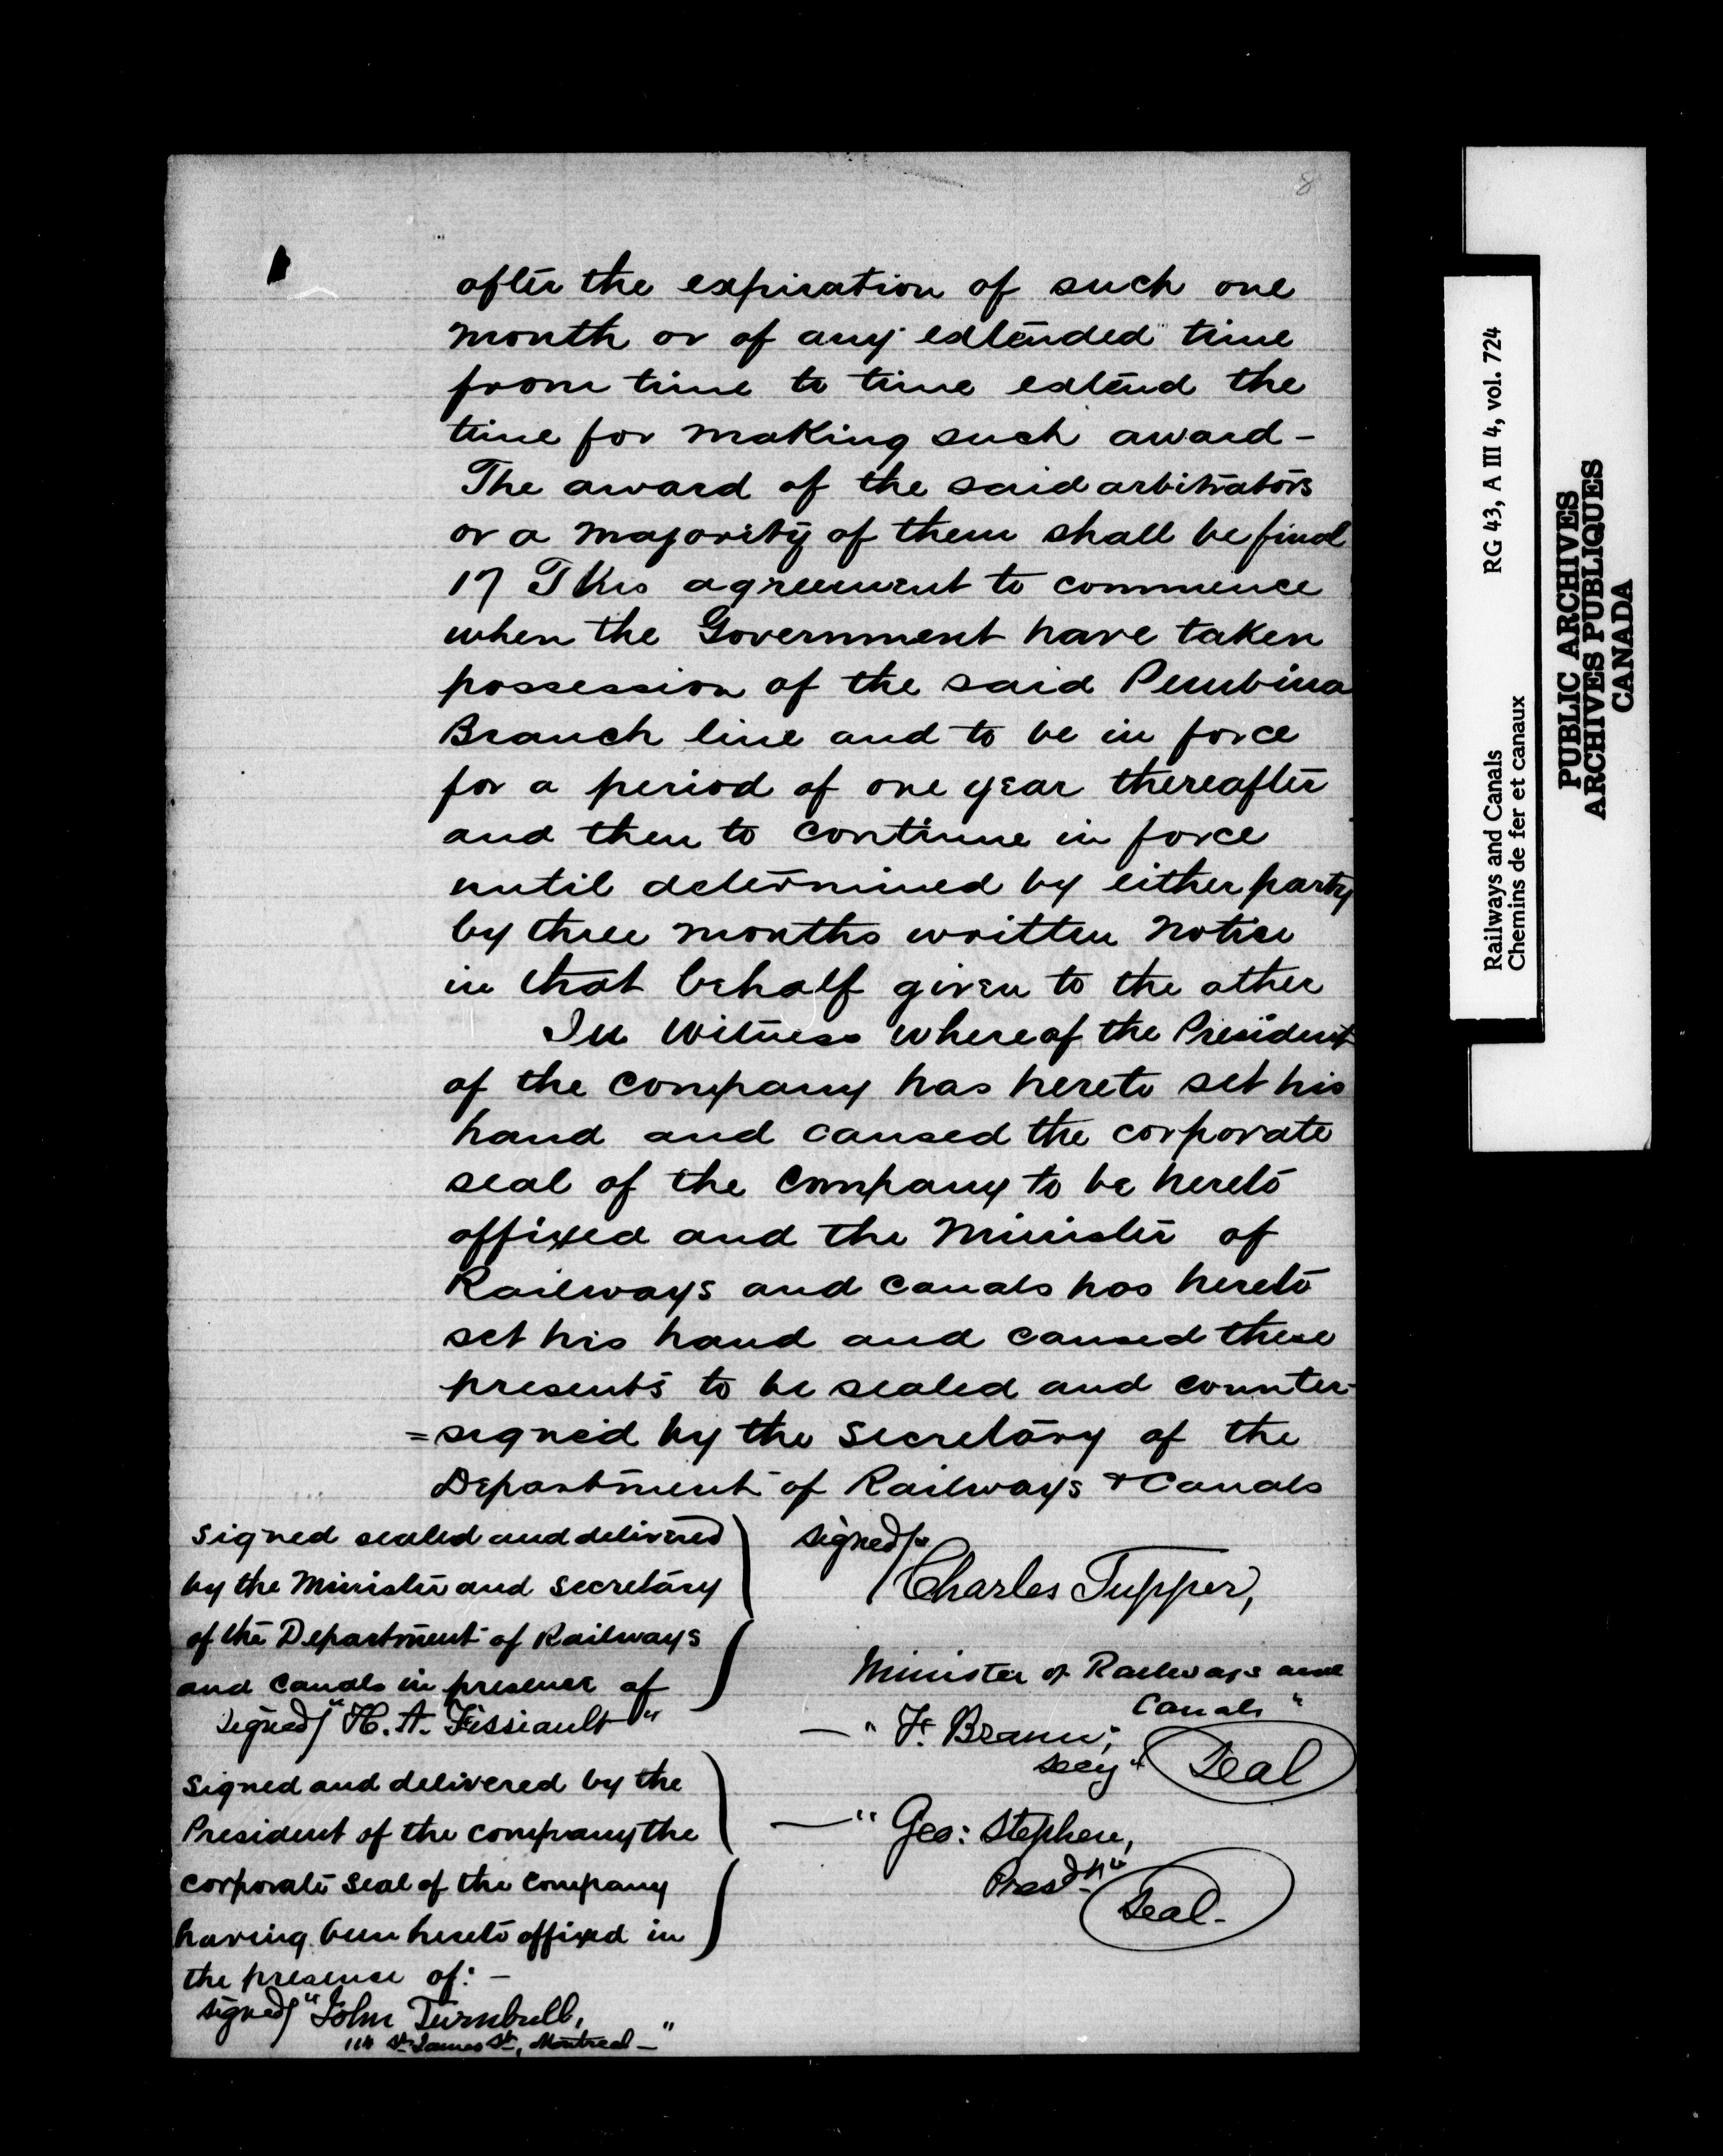 8
after the expiration of such one
month or of any extended time
from time to time extend the
time for making such award -
The award of the said arbitrators
or a majority of them shall be final
17 This agreement to commence
when the Government have taken
possession of the said Pembina
Branch line and to be in force
for a period of one year thereafter
and then to continue in force
until determined by either party
by three months written notice
in that behalf given to the other
In Witness whereof the President
of the Company has hereto set his
hand and caused the corporate
seal of the Company to be hereto
affixed and the Minister of
Railways and Canals has hereto
set his hand and caused these
presents to be sealed and counter-
=signed by the Secretary of the
Department of Railways & Canals
Signed sealed and delivered
by the Minister and Secretary
of the Department of Railways
and Canals in presence of
signed) "H. A. Fissiault"
signed) "
Charles Tupper,
Minister of Railways and
Canals"
— " F. Braun,
Secy "
Seal
Signed and delivered by the
President of the Company the
Corporate Seal of the Company
having been hereto affixed in
the presence of: -
signed) "John Turnbull,
114 St James St, Montreal - "
— " Geo: Stephen,
Presdt"
Seal -
Railways and Canals RG 43, A III 4, vol. 724
Chemins de fer et canaux
PUBLIC ARCHIVES
ARCHIVES PUBLIQUES
CANADA